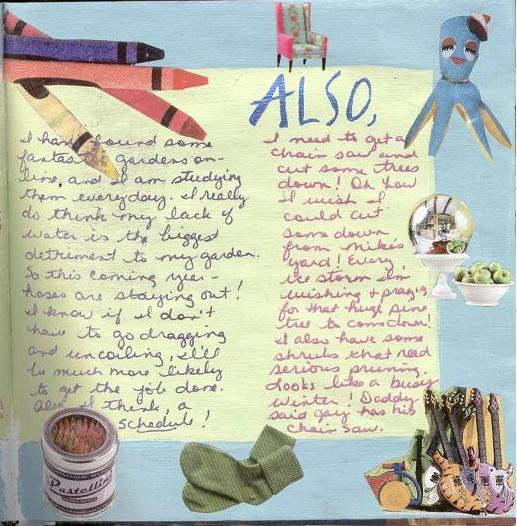 I have found some
fantastic gardens on-
line, and I am studying
them everyday. I really
do think my lack of
water is the biggest
detriment to my garden.
So this coming year -
hoses are staying out!
I know if I don't
have to go dragging
and uncoiling, I'll
be much more likely
to get the job done.
Also I think, a
schedule!
Pastellini
ALSO,
I need to get a
chain saw and
cut some trees
down! Oh how
I wish I
could cut
some down
from Mike's
yard! Every
ice storm I'm
wishing + praying
for that huge pine
tree to come down!
I also have some
shrubs that need
serious pruning.
Looks like a busy
winter! Daddy
said Jay has his
chain saw.